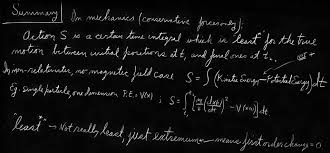 Summary In mechanics (conservative forces only):
Action S is a certain time integral which is "least" for the true
motion between initial positions at t₁ and final ones at t₂.
In non-relativistic, no magnetic field case S = ∫ (Kinetic Energy - Potential Energy) dt
Eg. single particle, one dimension P.E. = V(x) ; S = ∫ [m/2 (dx/dt)² - V(x(t))] dt.
"least" → Not really least, just extremum - means first order change = 0